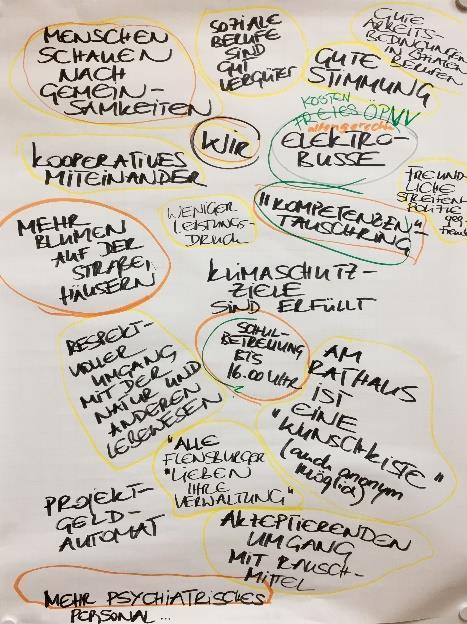 MENSCHEN
SCHAUEN
NACH
GEMEIN-
SAMKEITEN
SOZIALE
BERUFE
SIND
GUT
VERGÜTET
GUTE
ARBEITS-
BEDINGUNGEN
IN SOZIALEN
BERUFEN
GUTE
STIMMUNG
KOSTEN
FREIES ÖPNV
altengerecht
ELEKTRO-
BUSSE
WIR
KOOPERATIVES
MITEINANDER
FREUND-
LICHE
STREIFEN-
POLITIE
MEHR
BLUMEN
AUF DER
STRAßE,
HÄUSERN
WENIGER
LEISTUNGS-
DRUCK
"KOMPETENZEN"-
TAUSCHRING
KLIMASCHUTZ-
ZIELE
SIND ERFÜLLT
RESPEKT-
VOLLER
UMGANG
MIT DER
NATUR UND
ANDEREN
LEBEWESEN
SCHUL-
BETREUUNG
BIS
16.00 UHR
AM
RATHAUS
IST
EINE
"WUNSCHKISTE"
(auch anonym
möglich)
"ALLE
FLENSBURGER
LIEBEN
IHRE
VERWALTUNG"
PROJEKT-
GELD-
AUTOMAT
AKZEPTIERENDEN
UMGANG
MIT RAUSCH-
MITTEL
MEHR PSYCHIATRISCHES
PERSONAL...